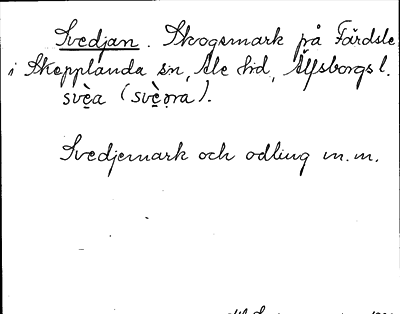 Svedjan. Skogsmark på Färdsle
i Skepplanda sn, Ale hd, Älfsborgs l.
svèa (svèɒra).
Svedjemark och odling m.m.